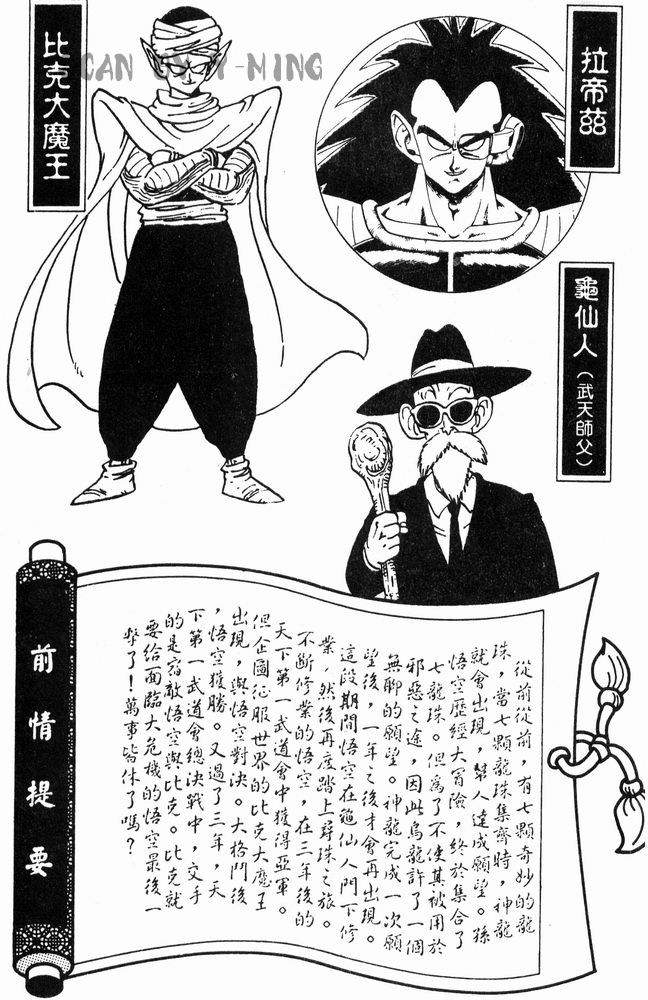 比克大魔王
CAN MING
拉帝茲
龜仙人(武天師父)
前情提要
從前從前，有七顆奇妙的龍
珠，當七顆龍珠集齊時，神龍
就會出現，幫人達成願望。孫
悟空歷經大冒險，終於集合了
七龍珠。但為了不使其被用於
邪惡之途，因此烏龍許了一個
無聊的願望。神龍完成一次願
望後，一年之後才會再出現。
這段期間悟空在龜仙人門下修
業，然後再度踏上尋珠之旅。
不斷修業的悟空，在三年後的
天下第一武道會中獲得亞軍。
但企圖征服世界的比克大魔王
出現，與悟空對決。大格鬥後
，悟空獲勝。又過了三年，天
下第一武道會總決戰中，交手
的是宿敵悟空與比克。比克就
要給面臨大危機的悟空最後一
擊了！萬事皆休了嗎？